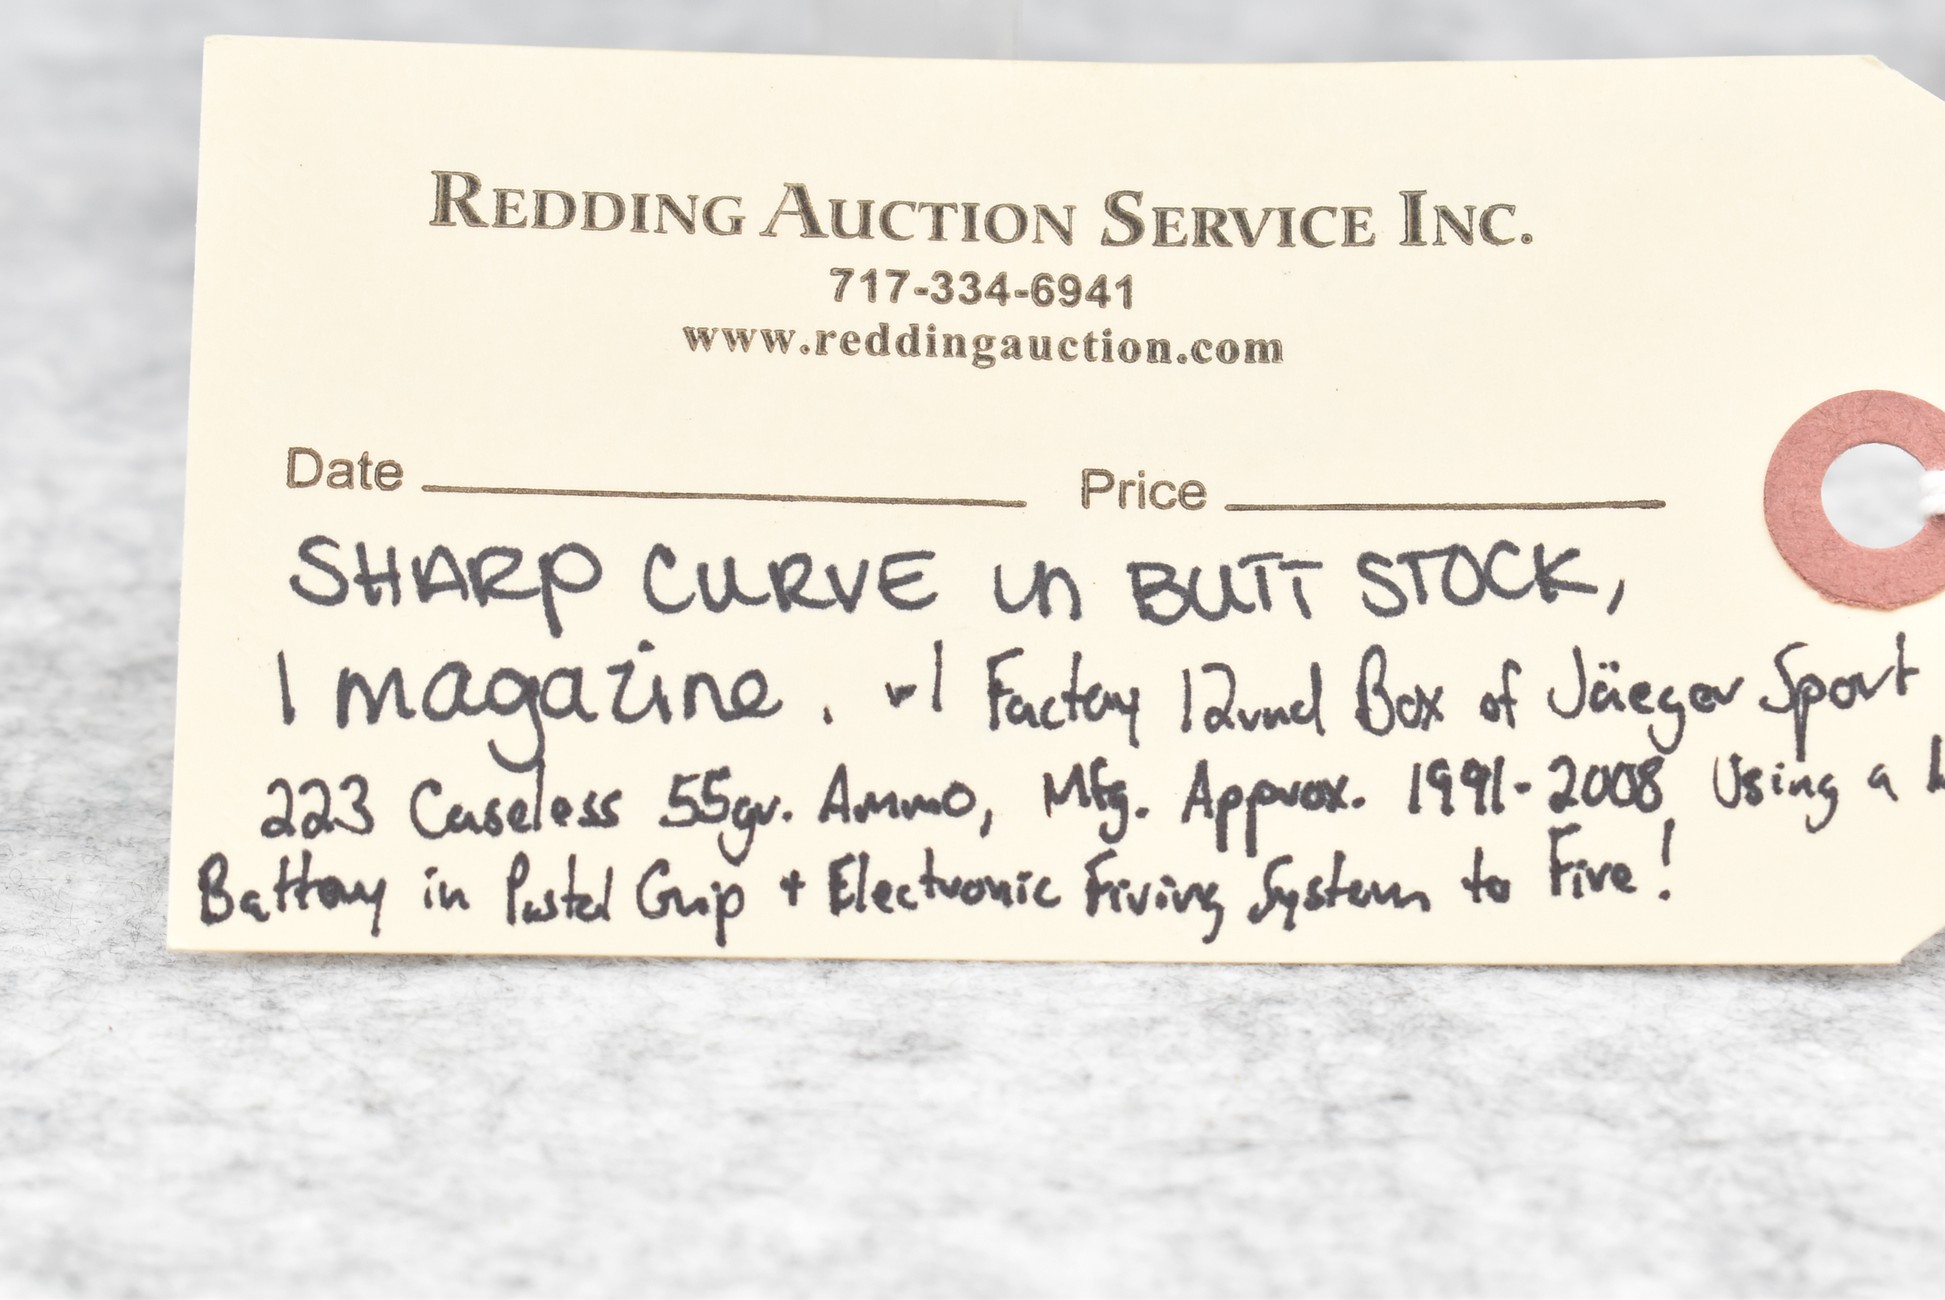 REDDING AUCTION SERVICE INC.
717-334-6941
www.reddingauction.com
Date Price
SHARP CURVE in BUTT STOCK,
1 magazine. -1 Factory 12rnd Box of Jäeger Sport
223 Caseless 55gr. Ammo, Mfg. Approx. 1991-2008, Using a
Battery in Pistol Grip + Electronic Firing System to Fire!